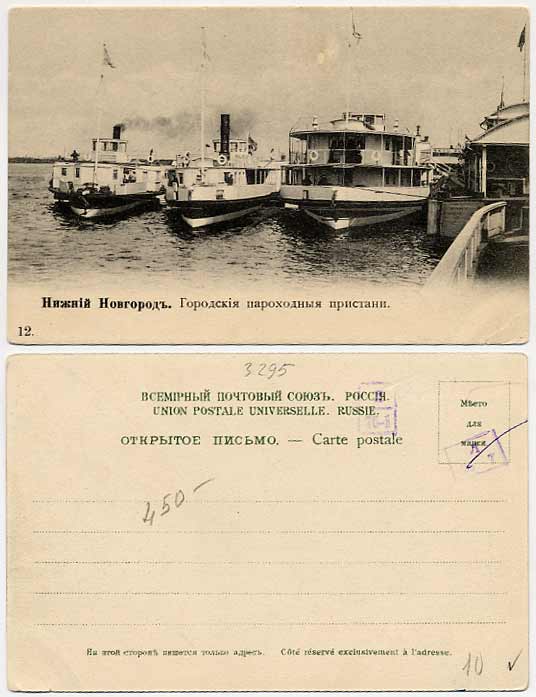 Нижній Новгородъ. Городскія пароходныя пристани.
12.
3295
ВСЕМІРНЫЙ ПОЧТОВЫЙ СОЮЗЪ. РОССІЯ.
UNION POSTALE UNIVERSELLE. RUSSIE.
ОТКРЫТОЕ ПИСЬМО. — Carte postale
Мѣсто
для
марки
450-
На этой сторонѣ пишется только адресъ. Côté réservé exclusivement à l'adresse.
10